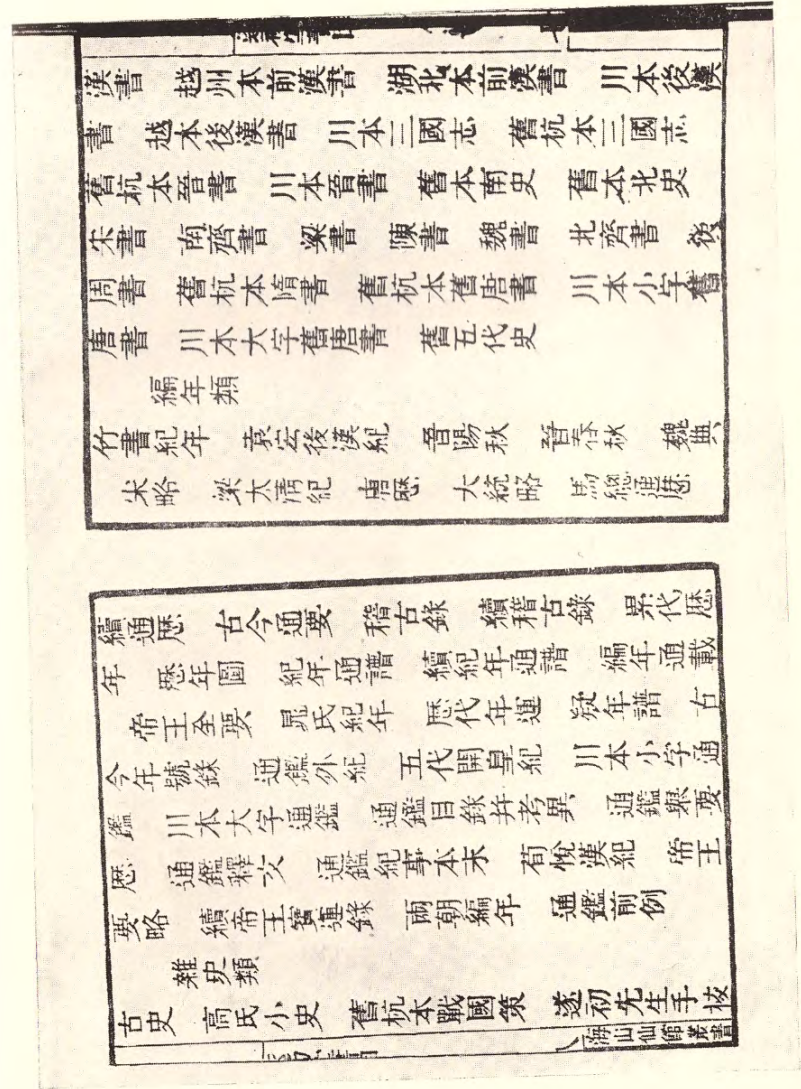 漢書 越州本前漢書 湖北本前漢書 川本後漢
書 越本後漢書 川本三國志 舊杭本三國志
舊杭本晉書 川本晉書 舊本南史 舊本北史
宋書 南齊書 梁書 陳書 魏書 北齊書 後
周書 舊杭本隋書 舊杭本舊唐書 川本小字舊
唐書 川本大字舊唐書 舊五代史
編年類
竹書紀年 袁宏後漢紀 晉陽秋 晉春秋 魏典
宋略 梁太清紀 唐歷 大統略 馬總通歷
續通歷 古今通要 稽古錄 續稽古錄 累代歷
年 歷年圖 紀年通譜 續紀年通譜 編年通載
帝王全要 晁氏紀年 歷代年運 疑年譜 古
今年號錄 通鑑外紀 五代開皇紀 川本小字通
鑑 川本大字通鑑 通鑑目錄幷考異 通鑑舉要
歷 通鑑釋文 通鑑紀事本末 荀悅漢紀 帝王
要略 續帝王寶運錄 兩朝編年 通鑑前例
雜史類
古史 高氏小史 舊杭本戰國策 遂初先生手校
海山仙館叢書